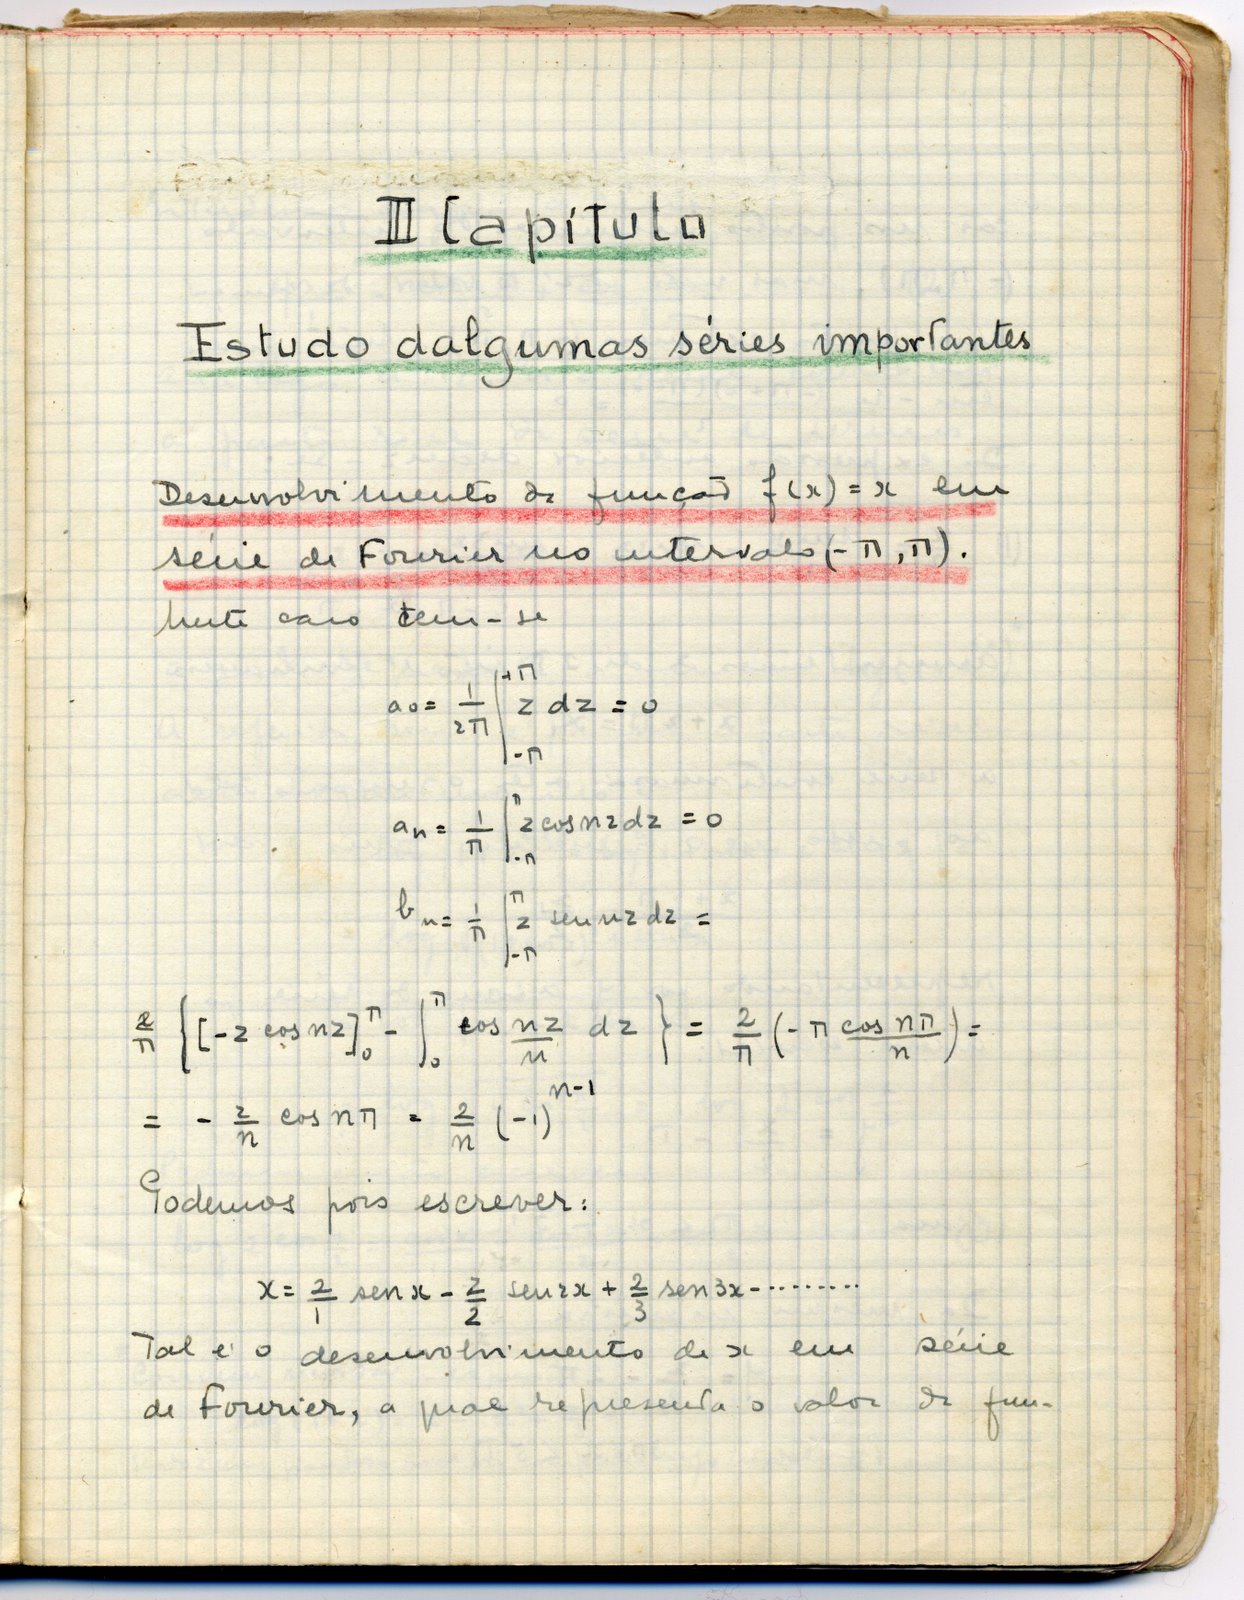 III Capítulo
Estudo dalgumas séries importantes
Desenvolvimento da função f(x) = x em
série de Fourier no intervalo (-π, π).
Neste caso tem-se
a₀ = 1/2π ∫_{-π}^{+π} z dz = 0
aₙ = 1/π ∫_{-π}^{π} z cos nz dz = 0
bₙ = 1/π ∫_{-π}^{π} z sen nz dz =
2/π { [-z cos nz]_0^π - ∫_0^π cos nz/n dz } = 2/π (-π cos nπ/n) =
= - 2/n cos nπ = 2/n (-1)^{n-1}
Podemos pois escrever:
x = 2/1 sen x - 2/2 sen 2x + 2/3 sen 3x - .........
Tal é o desenvolvimento de x em série
de Fourier, a qual representa o valor da fun-